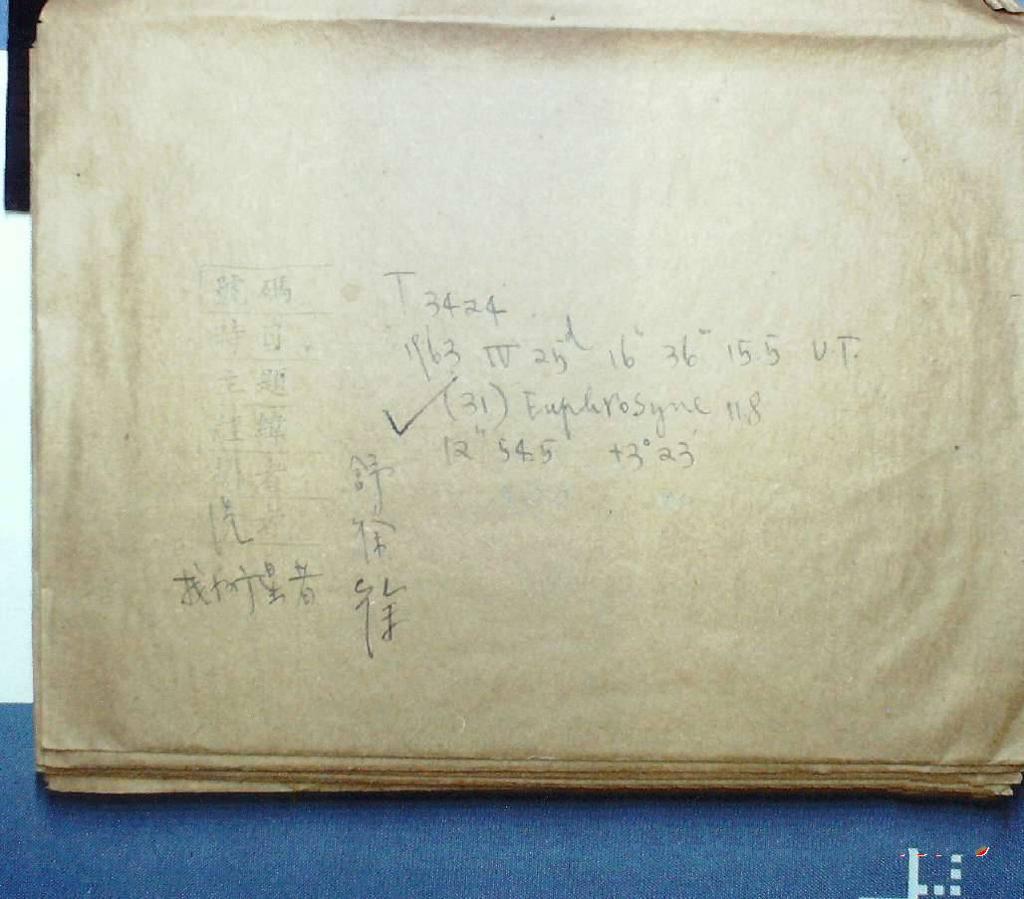 號碼 T 3424
時日 1963 IV 25ᵈ 16ʰ 36ᵐ 15.5 U.T.
主題 ✓ (31) Euphrosyne 11.8
12ʰ 54.5 +3° 23′
者 舒
洗 徐
找小行星者 徐